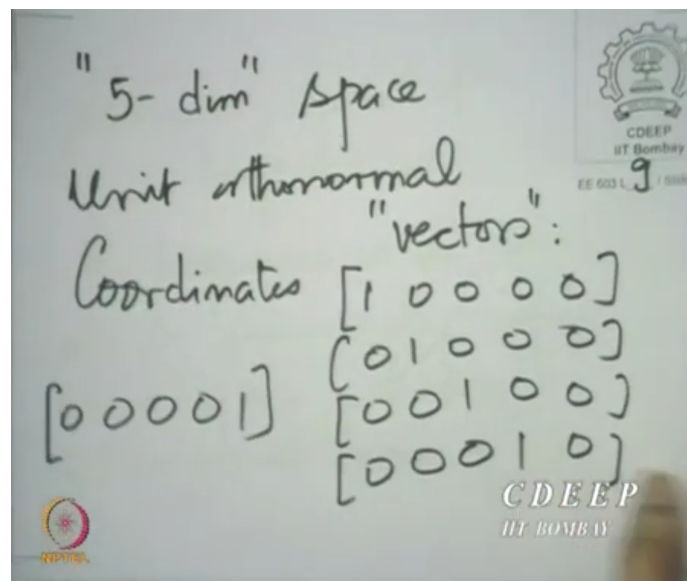 "5-dim" space
Unit orthonormal
"vectors":
Coordinates [1 0 0 0 0]
[0 1 0 0 0]
[0 0 1 0 0]
[0 0 0 1 0]
[0 0 0 0 1]
CDEEP
IIT Bombay
EE 603 L 9 / Slide
CDEEP
IIT BOMBAY
NPTEL